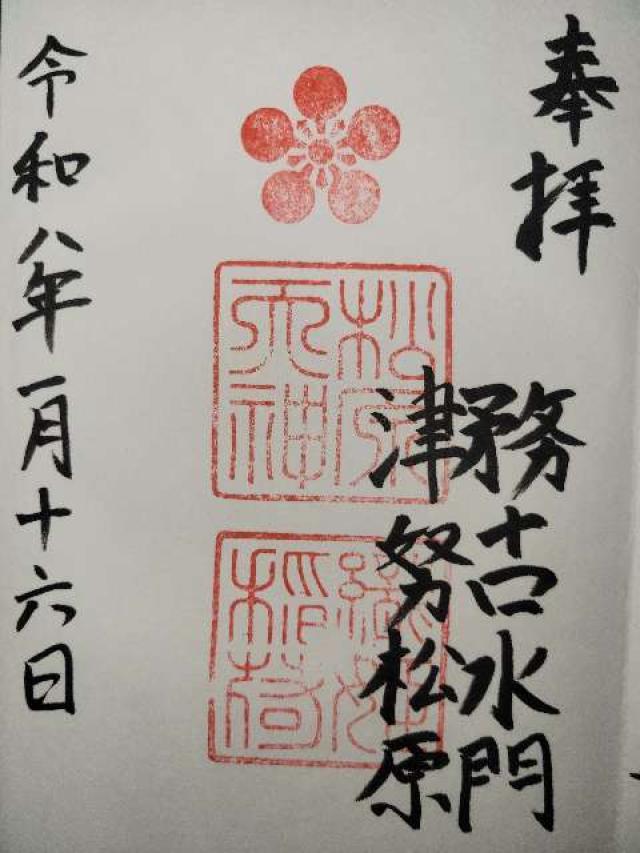 奉拝
務古水門
津努松原
松原
天神
稲荷
令和八年一月十六日